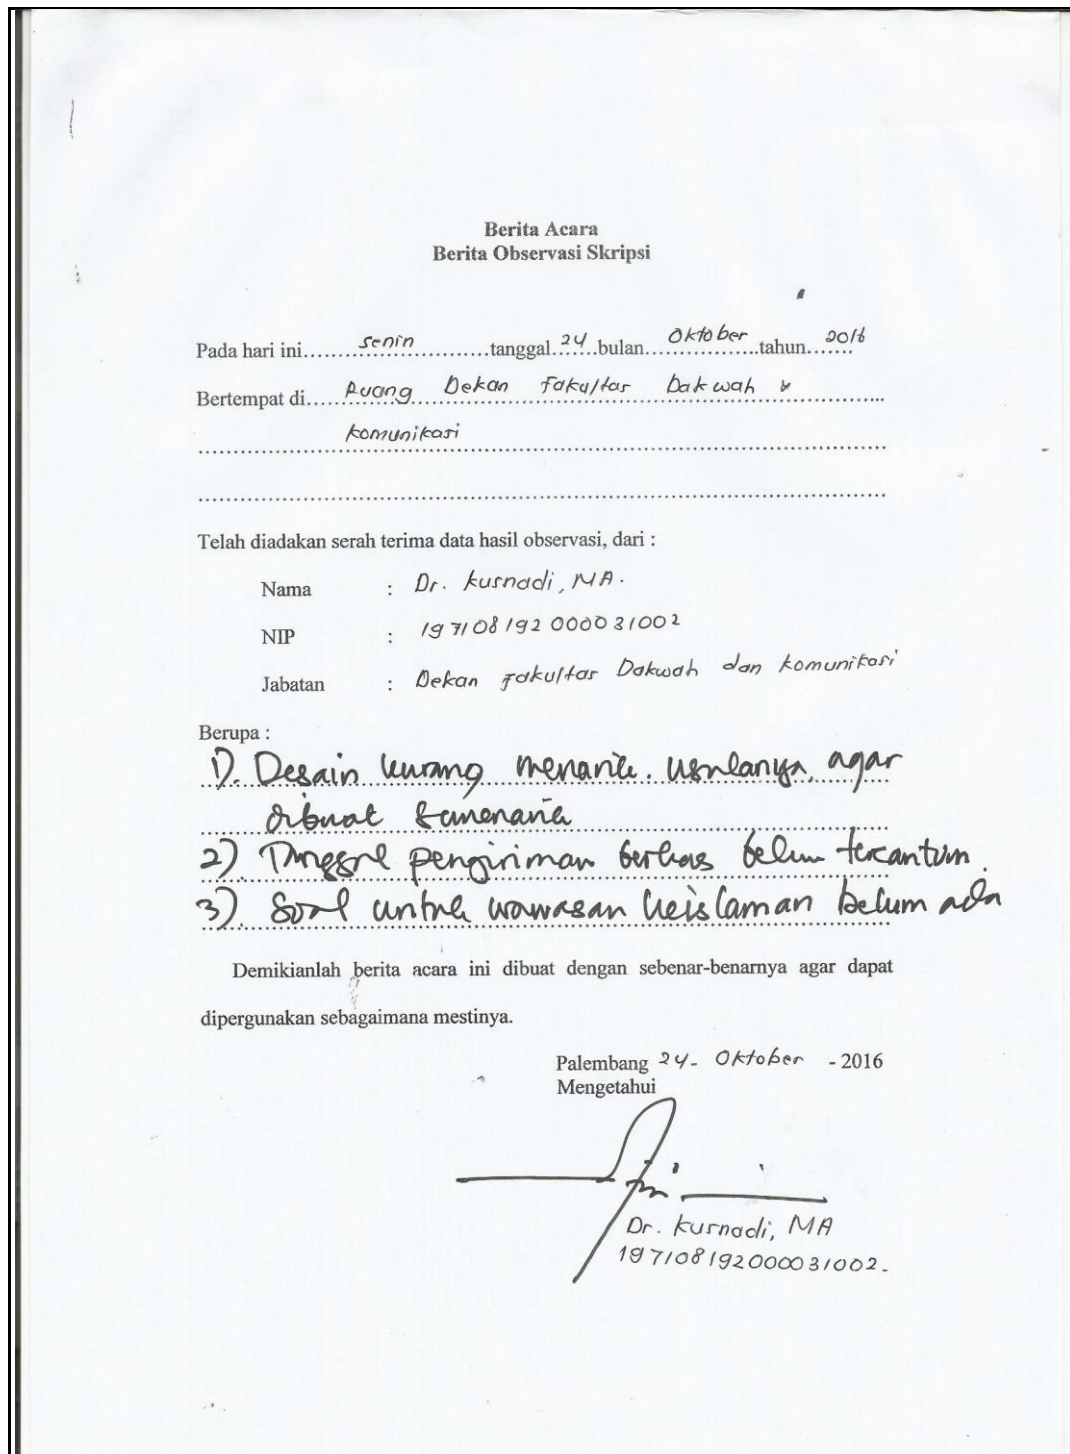 Berita Acara
Berita Observasi Skripsi
Pada hari ini......senin......tanggal..24..bulan......Oktober......tahun...2016
Bertempat di......Ruang Dekan Fakultas Dakwah &
komunikasi
Telah diadakan serah terima data hasil observasi, dari :
Nama : Dr. kusnadi, MA.
NIP : 197108192000031002
Jabatan : Dekan Fakultas Dakwah dan komunikasi
Berupa :
1). Desain kurang menarik. usulanya, agar
dibuat semenarik
2). Tanggal pengiriman berkas belum tercantum.
3). Soal untuk wawasan keislaman belum ada
Demikianlah berita acara ini dibuat dengan sebenar-benarnya agar dapat
dipergunakan sebagaimana mestinya.
Palembang 24- Oktober - 2016
Mengetahui
Dr. kusnadi, MA
197108192000031002.